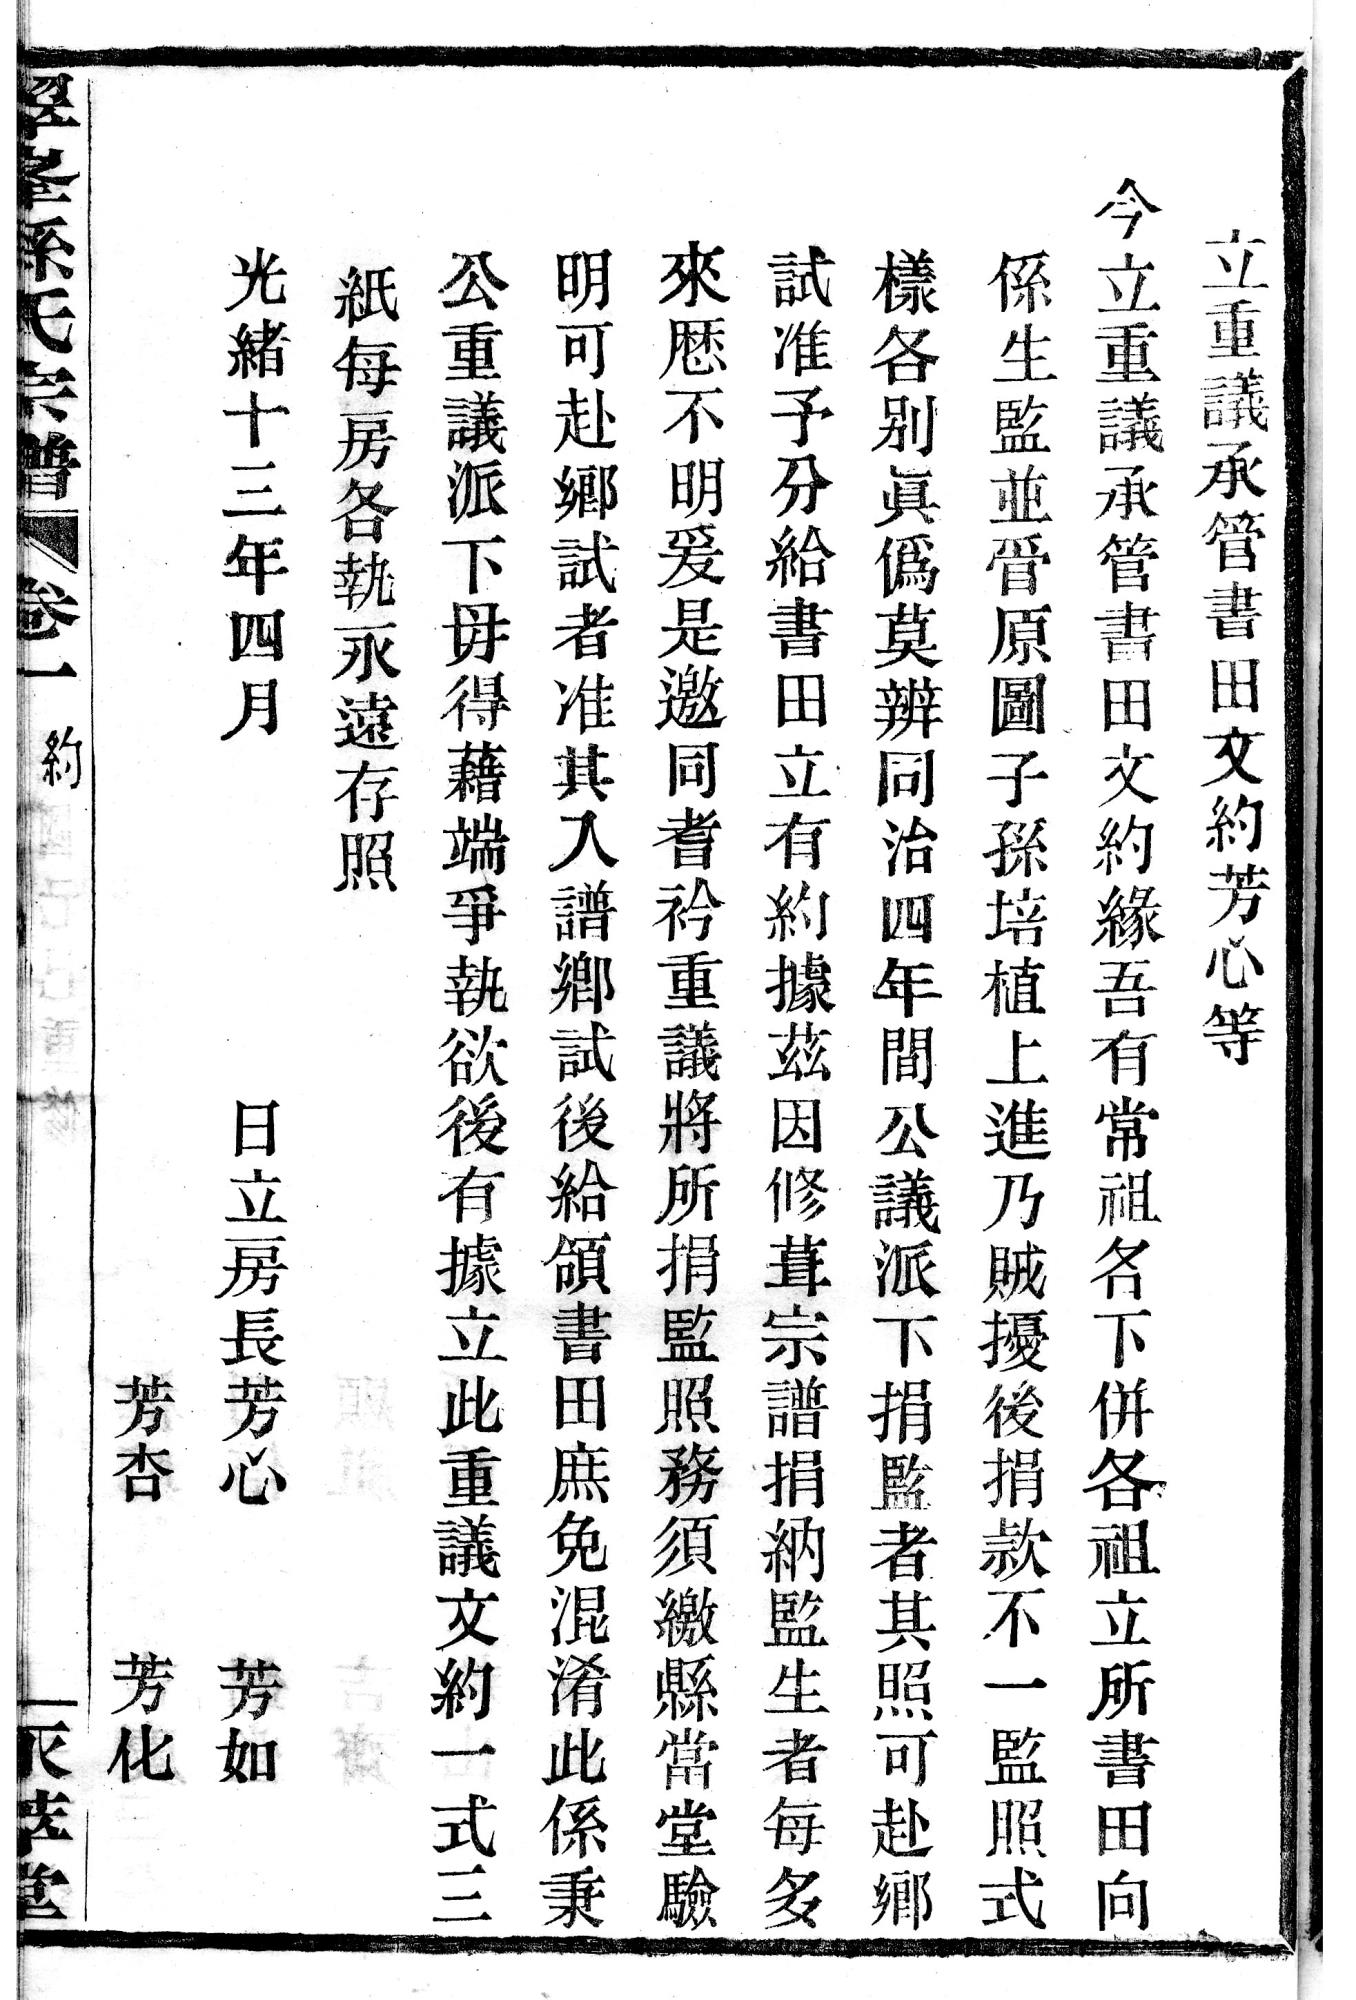 立重議承管書田文約芳心等
今立重議承管書田文約緣吾有常祖名下併各祖立所書田向
係生監並嘗原圖子孫培植上進乃賊擾後捐款不一監照式
樣各别眞僞莫辨同治四年間公議派下捐監者其照可赴鄉
試准予分給書田立有約據茲因修葺宗譜捐納監生者每多
來歷不明爰是邀同耆衿重議將所捐監照務須繳縣當堂驗
明可赴鄉試者准其入譜鄉試後給領書田庶免混淆此係秉
公重議派下毋得藉端爭執欲後有據立此重議文約一式三
紙每房各執永遠存照
光緒十三年四月　日立房長芳心　芳如
芳杏　芳化
翠峯孫氏宗譜　卷一　約　堂